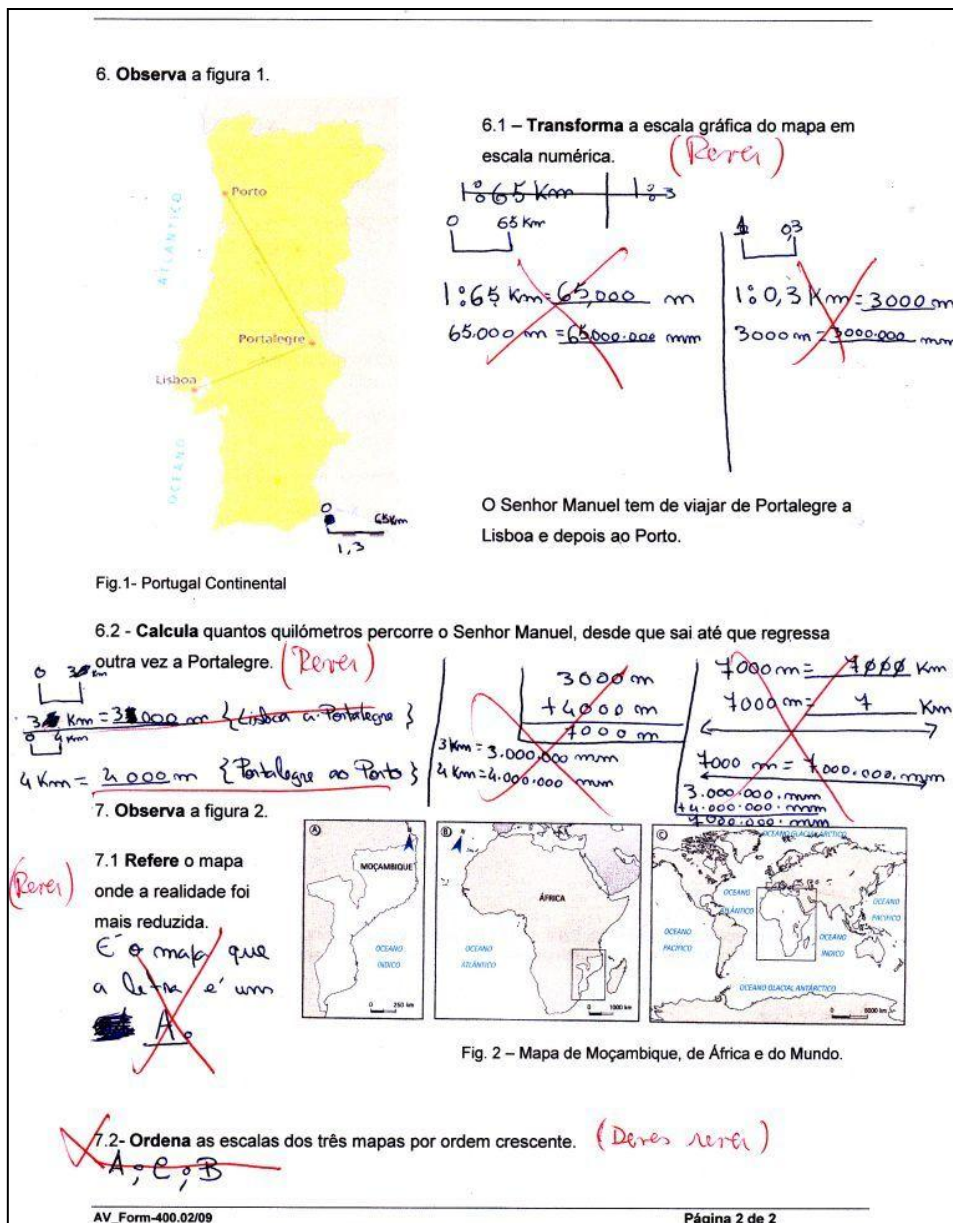 6. Observa a figura 1.
6.1 – Transforma a escala gráfica do mapa em
escala numérica.
(Rever)
1:65 Km
1:3
0 65 Km
1:65 Km = 65,000 m
65.000 m = 65.000.000 mm
0,3
1:0,3 Km = 3000 m
3000 m = 3000.000 mm
Porto
ATLÂNTICO
Portalegre
Lisboa
OCEANO
0 65Km
1,3
O Senhor Manuel tem de viajar de Portalegre a
Lisboa e depois ao Porto.
Fig.1- Portugal Continental
6.2 - Calcula quantos quilómetros percorre o Senhor Manuel, desde que sai até que regressa
outra vez a Portalegre.
(Rever)
Km = 3000 m {Lisboa a Portalegre}
0 4Km
4 Km = 4000 m {Portalegre ao Porto}
3000 m
+4000 m
7000 m
3 Km = 3.000.000 mm
4 Km = 4.000.000 mm
7000 m = 7000 Km
7000 m = 7 Km
7000 m = 7000.000.mm
3.000.000.mm
+4.000.000.mm
7000.000.mm
7. Observa a figura 2.
7.1 Refere o mapa
onde a realidade foi
mais reduzida.
(Rever)
É o mapa que
a letra é um
A.
A
MOÇAMBIQUE
OCEANO
ÍNDICO
0 250 km
B
ÁFRICA
OCEANO
ATLÂNTICO
0 1000 km
C
OCEANO GLACIAL ÁRCTICO
OCEANO
ATLÂNTICO
OCEANO
PACÍFICO
OCEANO
PACÍFICO
OCEANO
ÍNDICO
OCEANO GLACIAL ANTÁRCTICO
0 5000 km
Fig. 2 – Mapa de Moçambique, de África e do Mundo.
7.2- Ordena as escalas dos três mapas por ordem crescente.
(Deves rever)
A; C; B
AV_Form-400.02/09
Página 2 de 2